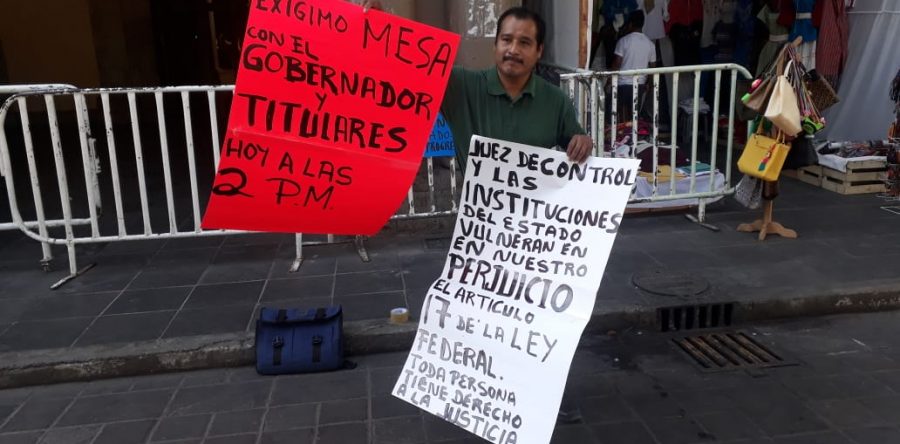 EXIGIMO MESA
CON EL
GOBERNADOR
Y
TITULARES
HOY A LAS
2 P.M.
JUEZ DE CONTROL
Y LAS
INSTITUCIONES
DEL ESTADO
VULNERAN EN
EN NUESTRO
PERJUICIO
EL ARTICULO
17 DE LA LEY
FEDERAL.
TODA PERSONA
TIENE DERECHO
A LA JUSTICIA